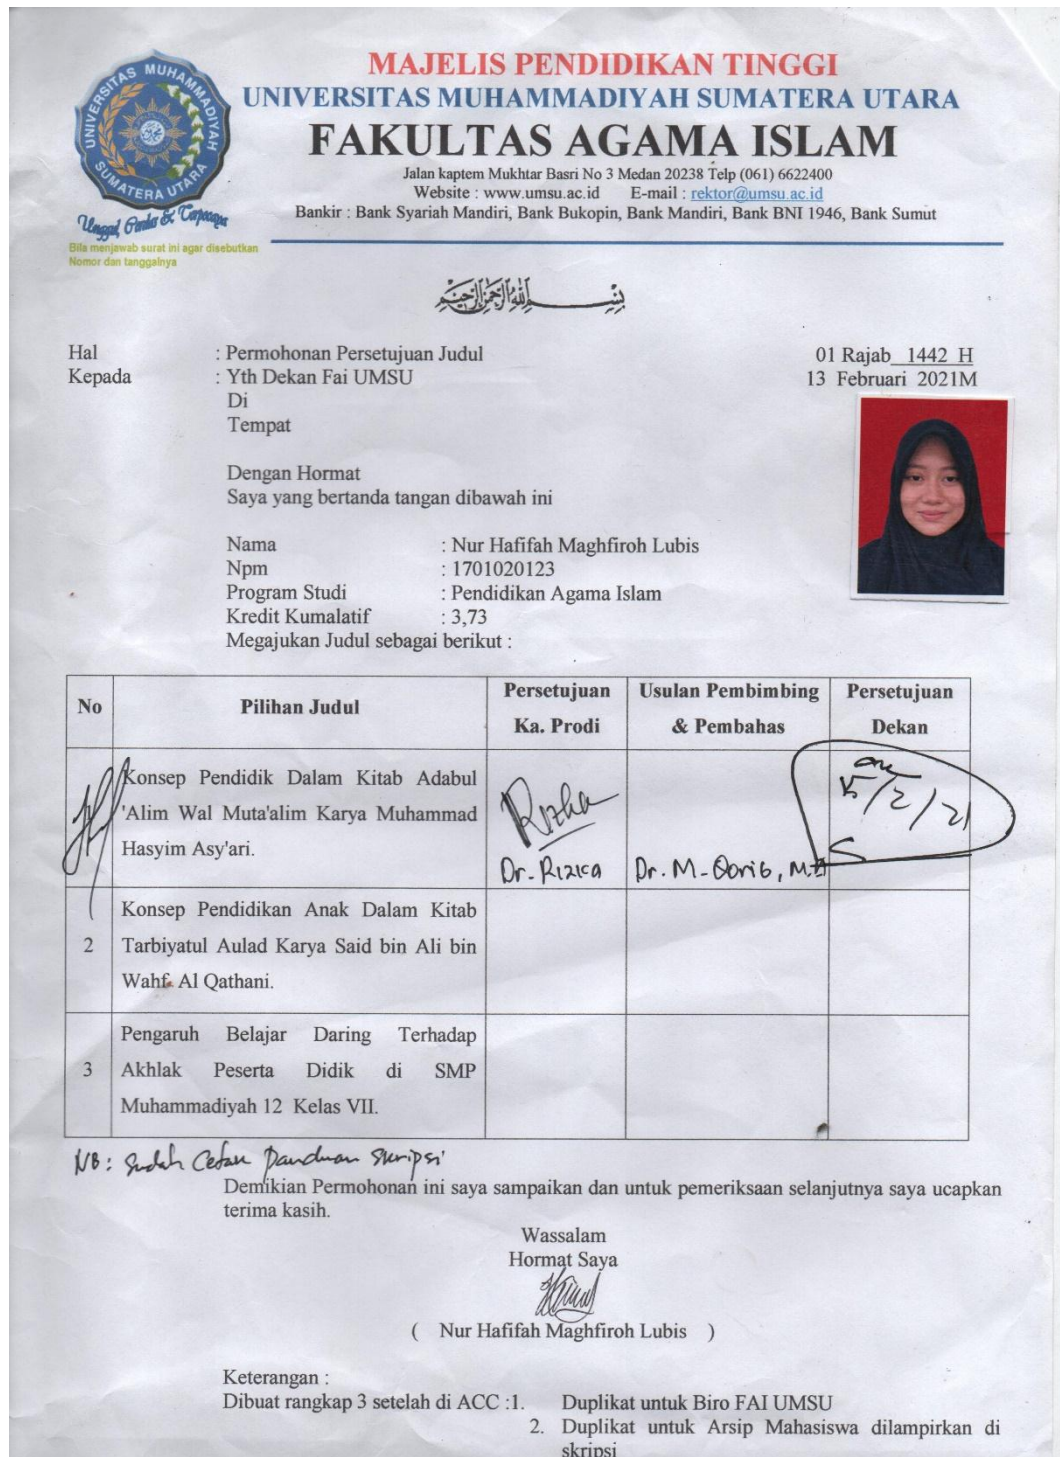 UNIVERSITAS MUHAMMADIYAH
SUMATERA UTARA
Unggul, Cerdas & Terpercaya
Bila menjawab surat ini agar disebutkan
Nomor dan tanggalnya
MAJELIS PENDIDIKAN TINGGI
UNIVERSITAS MUHAMMADIYAH SUMATERA UTARA
FAKULTAS AGAMA ISLAM
Jalan kaptem Mukhtar Basri No 3 Medan 20238 Telp (061) 6622400
Website : www.umsu.ac.id E-mail : rektor@umsu.ac.id
Bankir : Bank Syariah Mandiri, Bank Bukopin, Bank Mandiri, Bank BNI 1946, Bank Sumut
بسم الله الرحمن الرحيم
Hal : Permohonan Persetujuan Judul 01 Rajab 1442 H
Kepada : Yth Dekan Fai UMSU 13 Februari 2021M
Di
Tempat
Dengan Hormat
Saya yang bertanda tangan dibawah ini
Nama : Nur Hafifah Maghfiroh Lubis
Npm : 1701020123
Program Studi : Pendidikan Agama Islam
Kredit Kumalatif : 3,73
Megajukan Judul sebagai berikut :
No Pilihan Judul Persetujuan Ka. Prodi Usulan Pembimbing & Pembahas Persetujuan Dekan
Konsep Pendidik Dalam Kitab Adabul
'Alim Wal Muta'alim Karya Muhammad
Hasyim Asy'ari.
Rizka
Dr. Rizka
Dr. M. Qorib, MA
15/2/21
Konsep Pendidikan Anak Dalam Kitab
2 Tarbiyatul Aulad Karya Said bin Ali bin
Wahf Al Qathani.
Pengaruh Belajar Daring Terhadap
3 Akhlak Peserta Didik di SMP
Muhammadiyah 12 Kelas VII.
NB: Sudah Cetak Panduan Skripsi
Demikian Permohonan ini saya sampaikan dan untuk pemeriksaan selanjutnya saya ucapkan
terima kasih.
Wassalam
Hormat Saya
( Nur Hafifah Maghfiroh Lubis )
Keterangan :
Dibuat rangkap 3 setelah di ACC :1. Duplikat untuk Biro FAI UMSU
2. Duplikat untuk Arsip Mahasiswa dilampirkan di
skripsi